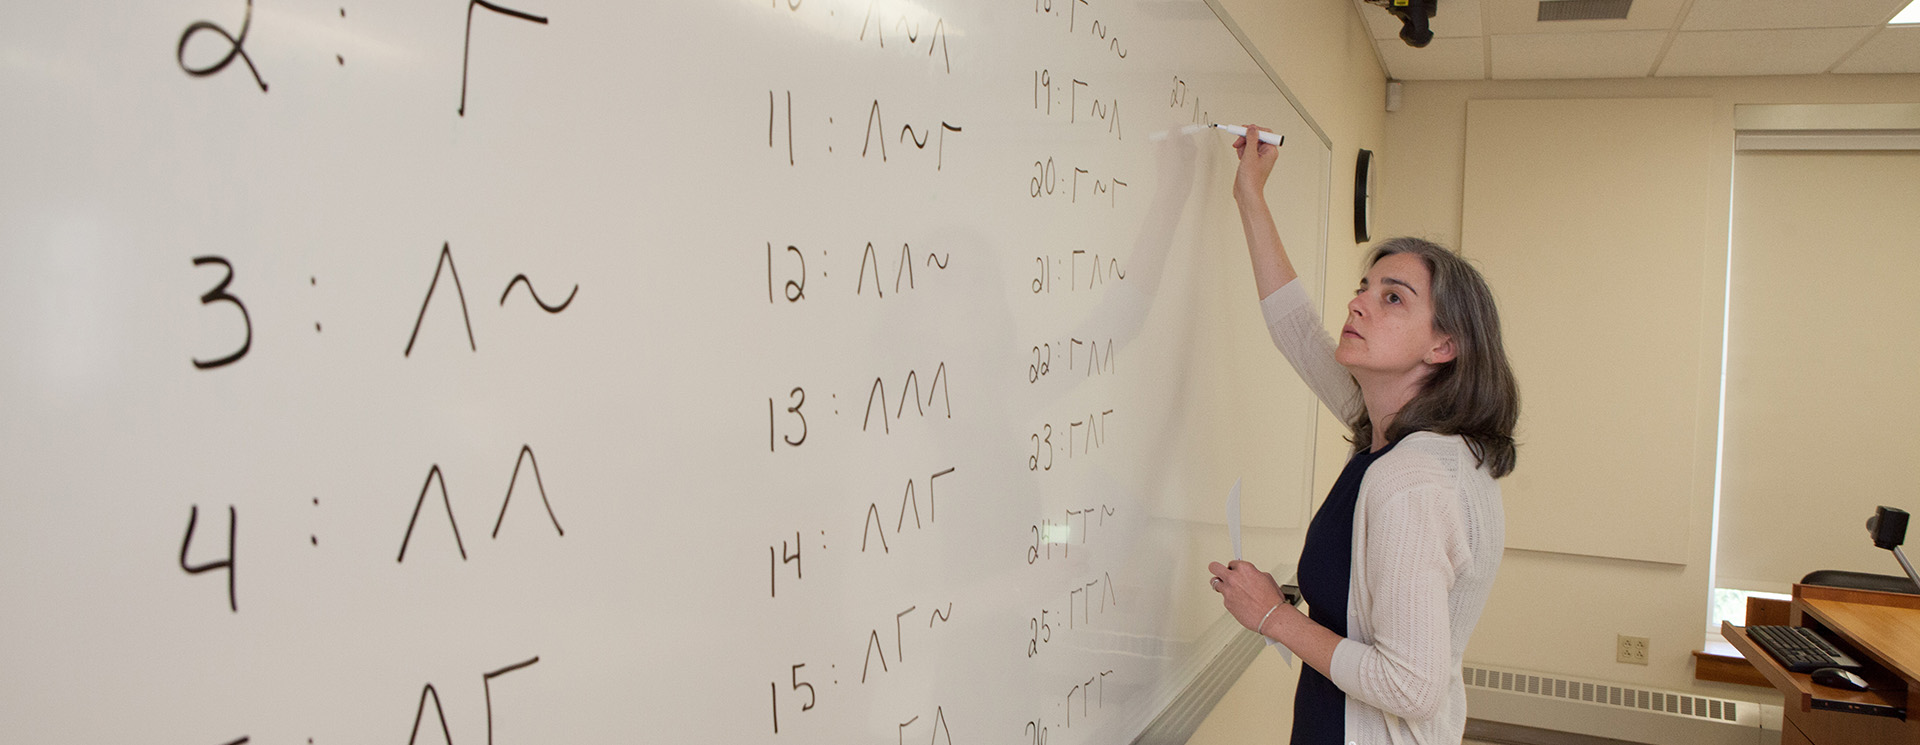 2 : Γ
3 : Λ ~
4 : Λ Λ
Λ Γ
10 : Λ ~ Λ
11 : Λ ~ Γ
12 : Λ Λ ~
13 : Λ Λ Λ
14 : Λ Λ Γ
15 : Λ Γ ~
Γ Λ
18 : Γ ~ ~
19 : Γ ~ Λ
20 : Γ ~ Γ
21 : Γ Λ ~
22 : Γ Λ Λ
23 : Γ Λ Γ
24 : Γ Γ ~
25 : Γ Γ Λ
26 : Γ Γ Γ
27 : Λ ~